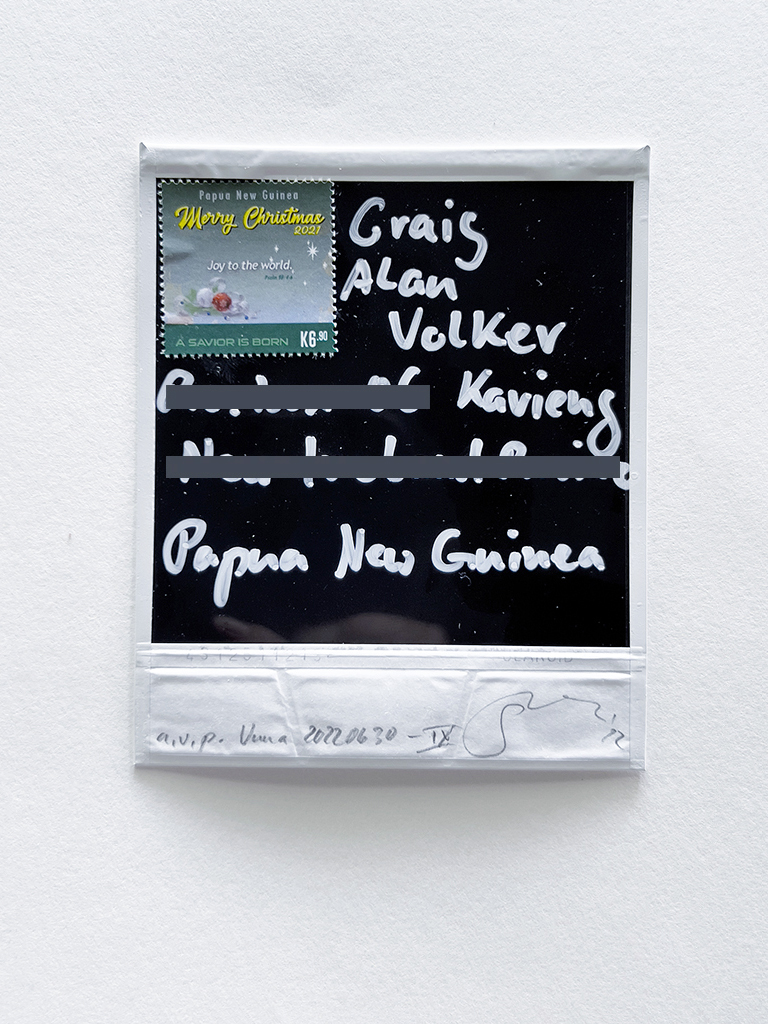 Papua New Guinea
Merry Christmas
2021
Joy to the world.
A SAVIOR IS BORN K6.90
Craig
Alan
Volker
Kavieng
Papua New Guinea
a.v.p. Vuna 20220630 - IX
'22